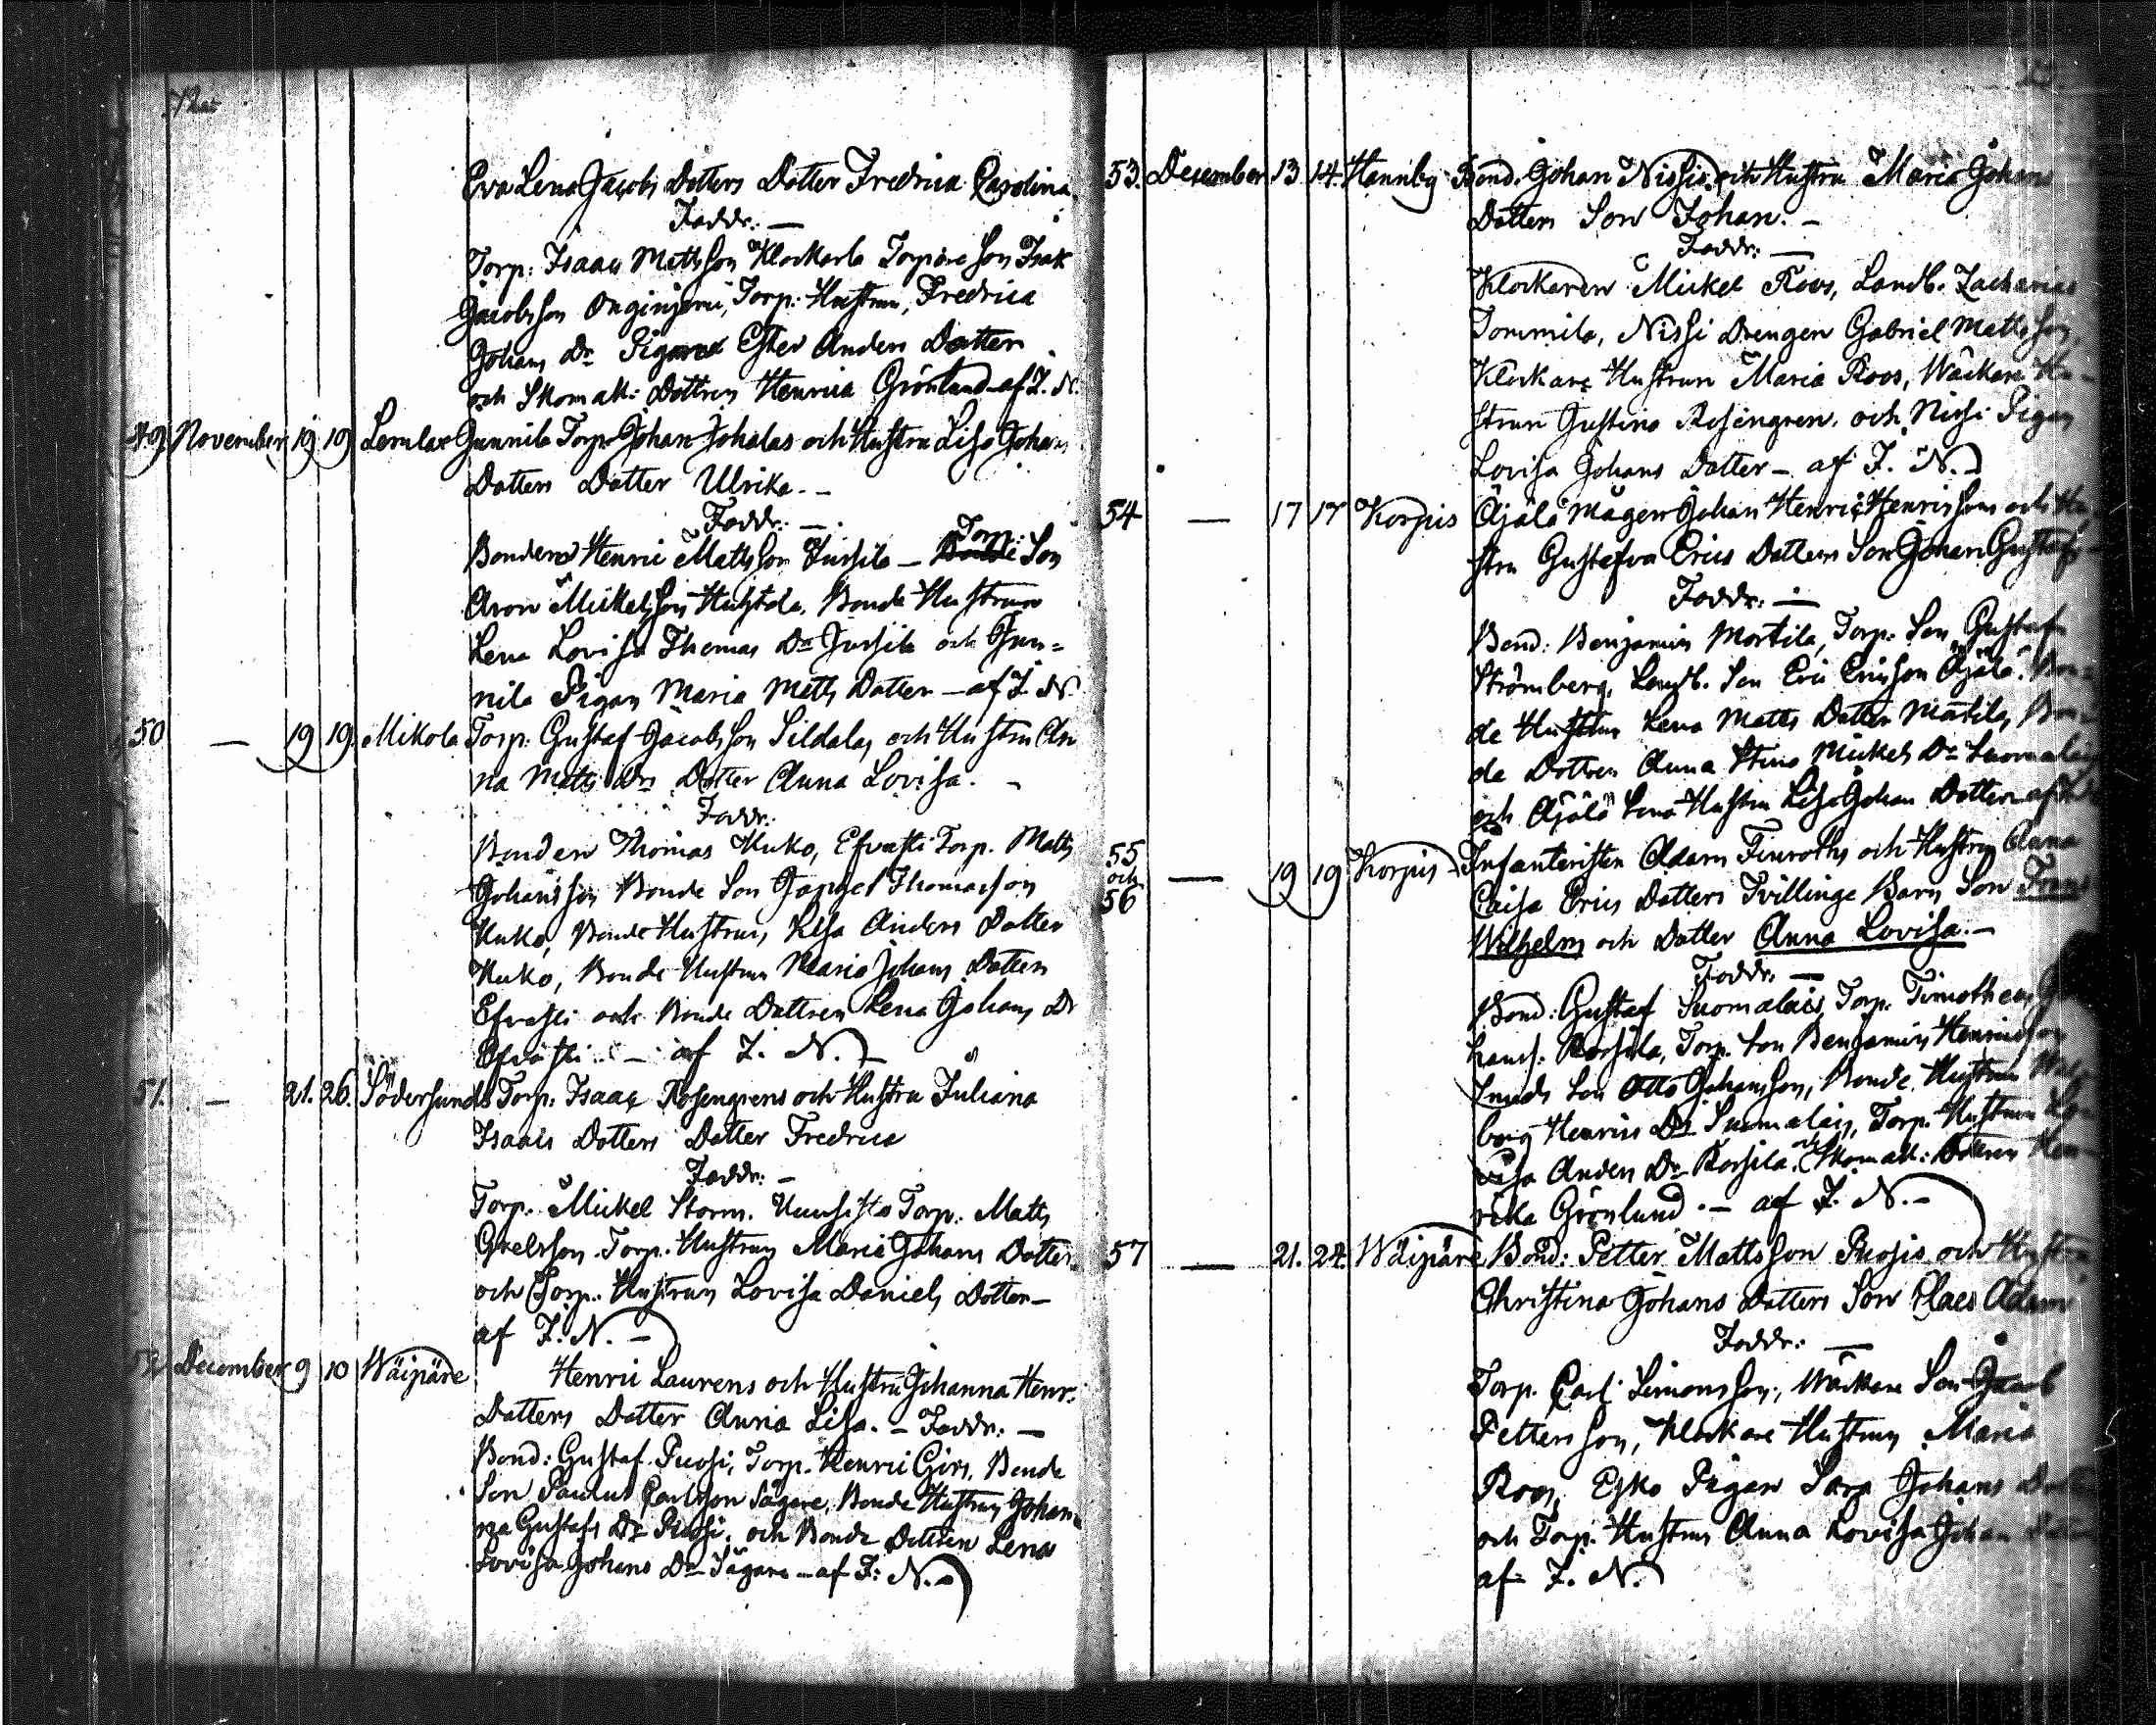 Eva Lena Jacobs Dotters Dotter Fredrica Carolina.
Faddr: —
Torp: Isaac Mattsson Klockarla Torpare Son Isak
Jacobsson Torp: Hustrun, Fredrica
Johans Dr Pigan Ester Anders Dotter
och Skomak: Dottren Henrica Grönlund af Z. N.
49. November 19 19 Lemlax Gunnila Torp Johan Johalas och Hustru Lisa Johans
Dotters Dotter Ulrika. —
Faddr: —
Torp:
Bonden Henric Mattsson Jussila — Son
Aron Mickelsson Bonde Hustrun
Lena Lovisa Thomas Dr Jussila och Gun=
nila Pigan Maria Matts Dotter — af Z. N.
50 — 19 19 Mikola Torp: Gustaf Jacobsson Sildalas och Hustru An
na Matts Drs Dotter Anna Lovisa. —
Faddr:
Bonden Thomas Kuko, Efraski Torp. Matts
Johansson Bonde Son Thomasson
Kuko, Bonde Hustrun, Lisa Anders Dotter
Kuko, Bonde Hustrun Maria Johans Dotter
och Bonde Dottren Lena Johans Dr
— af Z. N.
51. — 21. 26. Södersunds Torp. Isaac Rosengrens och Hustru Juliana
Isaacs Dotters Dotter Fredrica
Faddr: —
Torp. Mickel Storm. Torp. Matts
Grelsson Torp. Hustrun Maria Johans Dotter
och Torp. Hustrun Lovisa Daniels Dotter —
af Z. N. —
52 December 9 10 Wäipäre Henric Laurens och Hustru Johanna Henr:
Dotters Dotter Anna Lisa. — Faddr: —
Bond: Gustaf Puosi, Torp. Henric Girs, Bonde
Son Paulus Carlsson Sågare, Bonde Hustrun Johan=
na Gustafs Dr Puosi, och Bonde Dottren Lena
Lovisa Johans Dr Sågare — af Z: N. —
53. December 13 14. Hannby Bond. Johan Nissis och Hustru Maria Johans
Dotters Son Johan. —
Faddr: —
Klockaren Mickel Roos, Landb. Zacharias
Tommila, Nissi Drengen Gabriel Mattsson,
Klockare Hustrun Maria Roos, Wäckare Hu-
strun Gustina Rosengren, och Nissi Pigan
Lovisa Johans Dotter — af Z. N.
54 — 17 17 Korpis Äjälä Mågen Johan Henric Henricsons och Hu
stru Gustafva Erics Dotters Son Johan Gustaf
Faddr: —
Bond: Benjamin Mortila, Torp: Son Gustaf
Strömberg, Landb. Son Eric Ericson Äjälä, Bon=
de Hustrun Lena Matts Dotter Bon
de Dottren Anna Stina Mickels Dr Suomalais
och Äjälä Hustru Lisa Johans Dotter af
55 och 56 — 19 19 Korpis Infanteristen Adam Finroths och Hustru Anna
Caisa Erics Dotters Tvillinge Barn Son Frans
Wilhelm och Dotter Anna Lovisa. —
Faddr: —
Bond: Gustaf Suomalais, Torp. Timotheus
Torp. Son Benjamin Henricsson
Son Otto Johansson, Bonde Hustrun Wal
borg Henrics Dr Suomalais, Torp. Hustrun Lo
visa Anders Dr och Skomak: Dottren Hen
rika Grönlund. — af Z. N. —
57 — 21. 24. Wäipäre Bond: Petter Mattsson Puosis och Hustru
Christina Johans Dotters Son Claes Adam
Faddr: —
Torp. Carl Simonsson, Wäckare Son Jacob
Pettersson, Klockare Hustrun Maria
Roos, Esko Pigan Sara Johans Dotter
och Torp. Hustrun Anna Lovisa Johans Dotter
af Z. N.